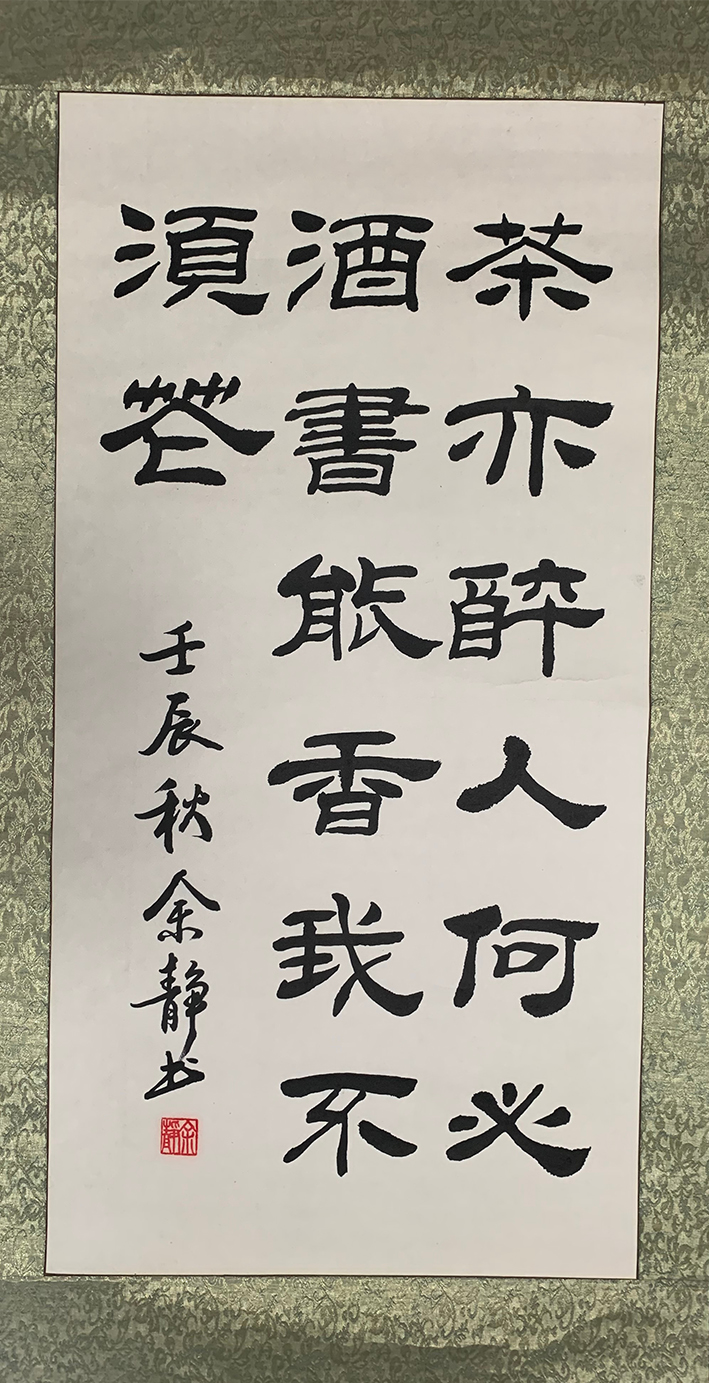 茶亦醉人何必
酒書能香我不
須花
壬辰秋余靜书
余靜